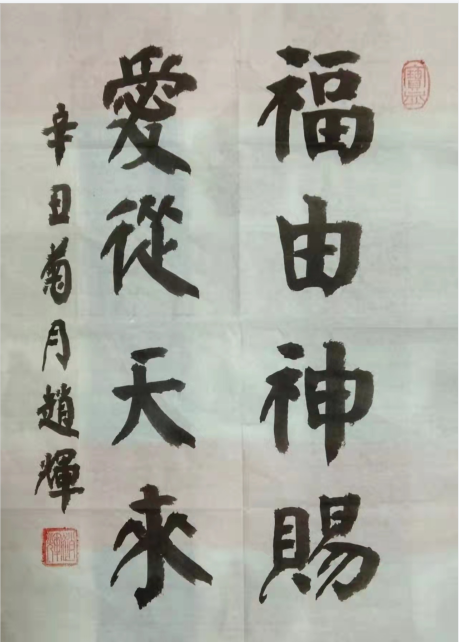 福由神賜
愛從天來
辛丑菊月趙輝